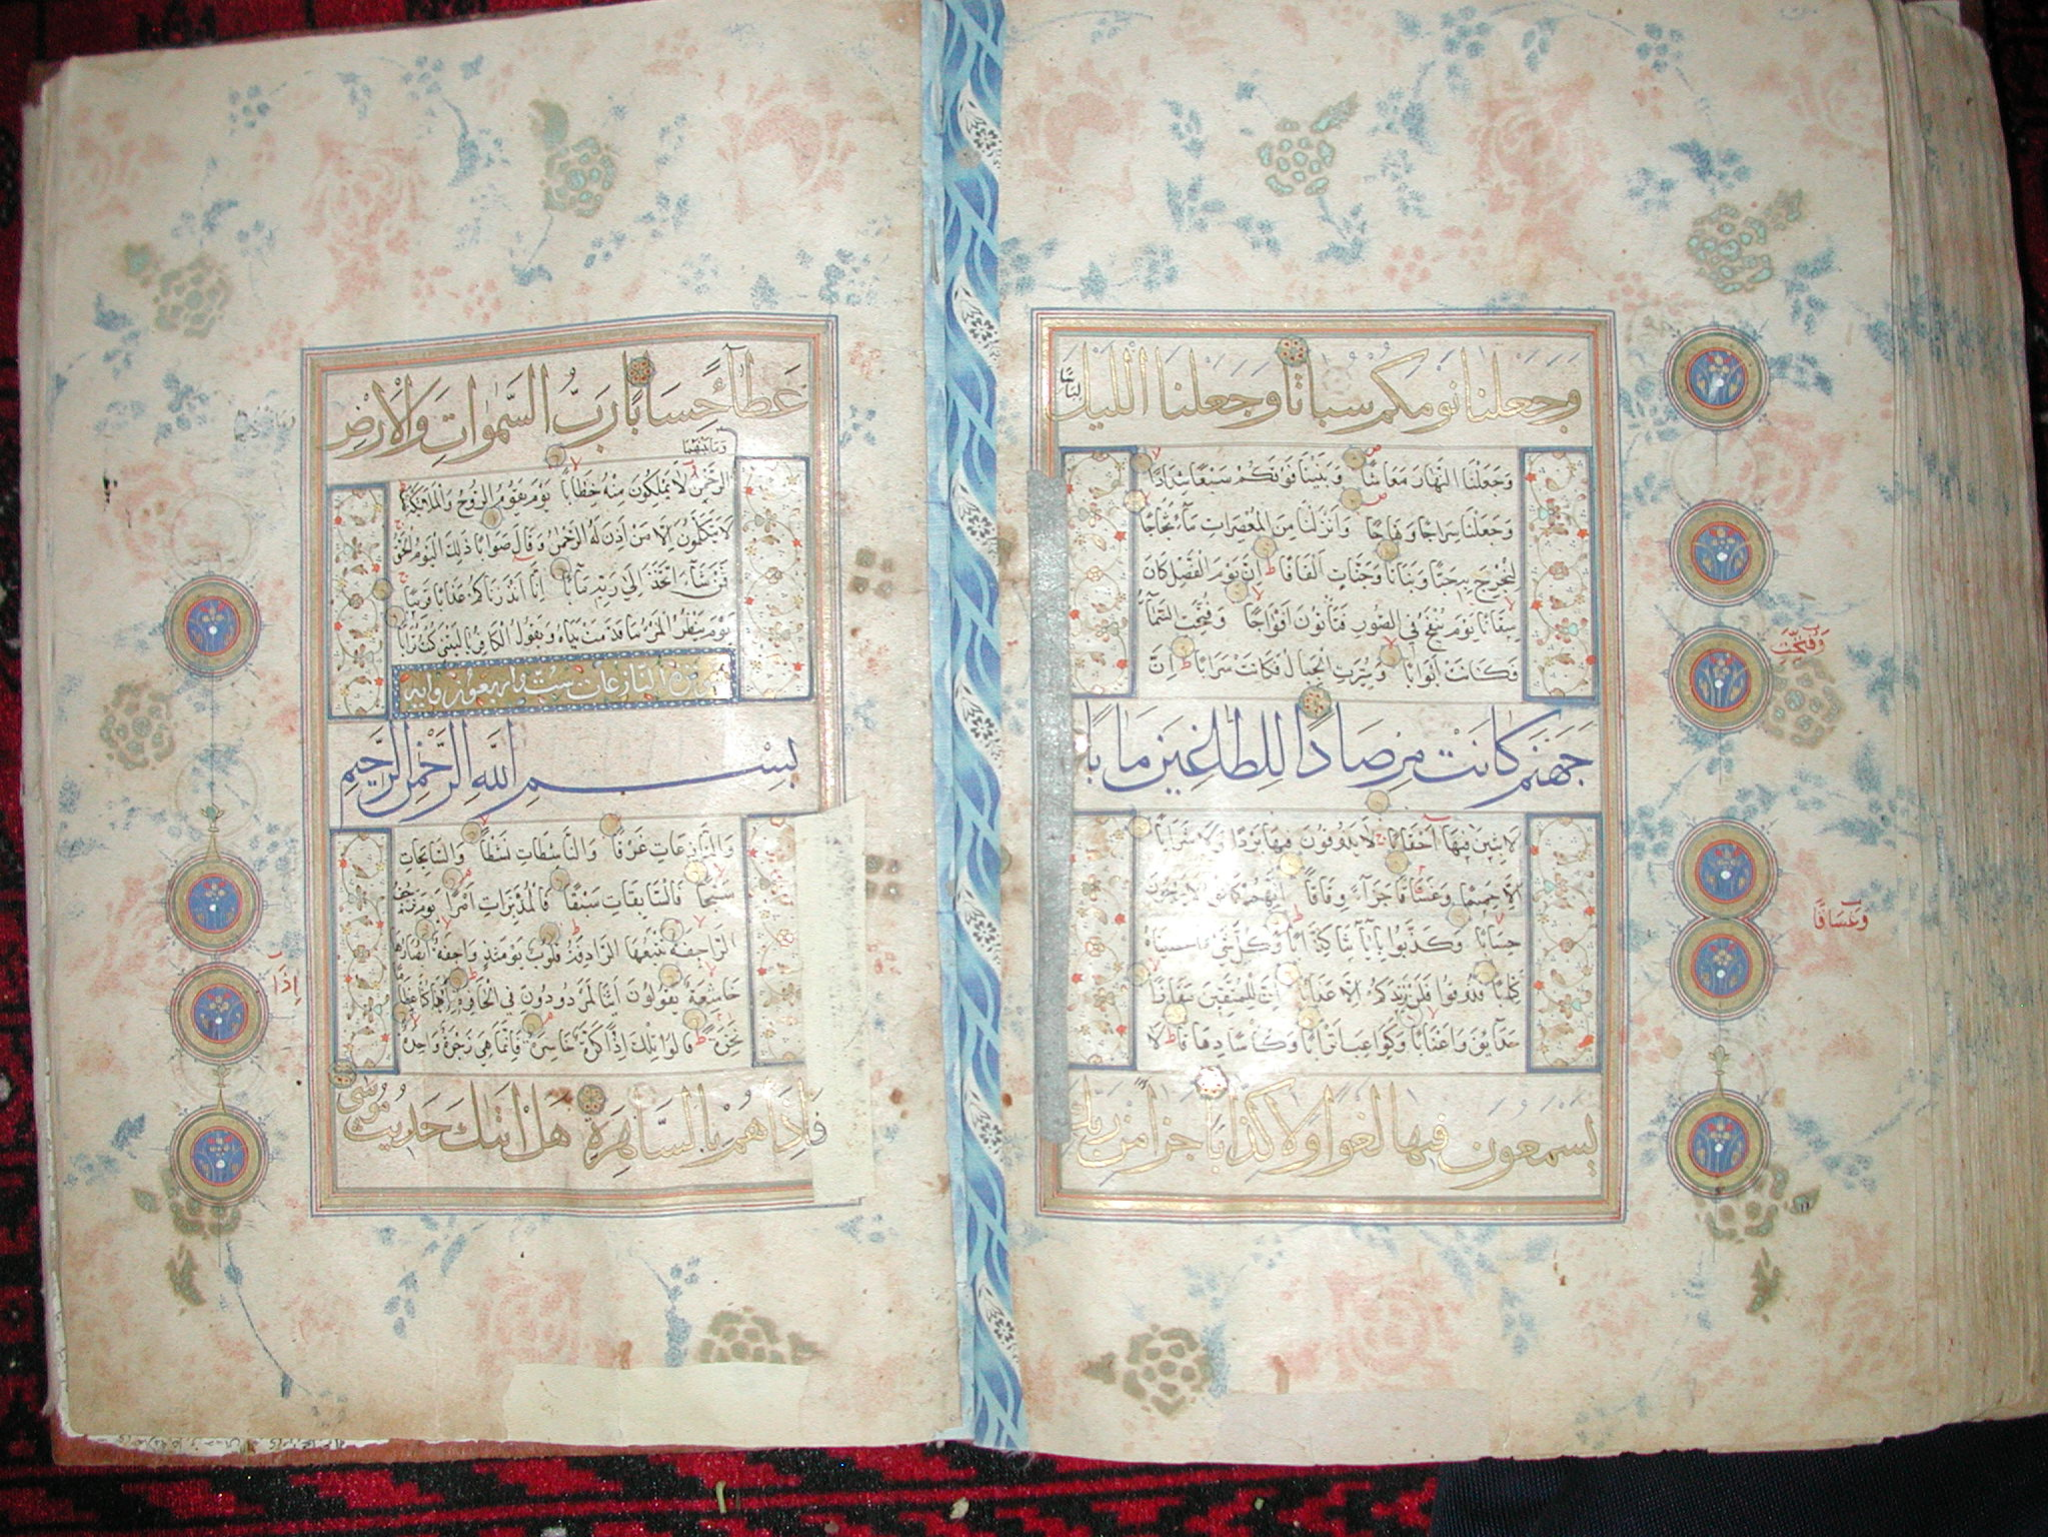 وَجَعَلْنَا نَوْمَكُمْ سُبَاتًا وَجَعَلْنَا اللَّيْلَ
لِبَاسًا
وَجَعَلْنَا النَّهَارَ مَعَاشًا وَبَنَيْنَا فَوْقَكُمْ سَبْعًا شِدَادًا
وَجَعَلْنَا سِرَاجًا وَهَّاجًا وَأَنْزَلْنَا مِنَ الْمُعْصِرَاتِ مَاءً ثَجَّاجًا
لِنُخْرِجَ بِهِ حَبًّا وَنَبَاتًا وَجَنَّاتٍ أَلْفَافًا إِنَّ يَوْمَ الْفَصْلِ كَانَ
مِيقَاتًا يَوْمَ يُنْفَخُ فِي الصُّورِ فَتَأْتُونَ أَفْوَاجًا وَفُتِحَتِ السَّمَاءُ
فَكَانَتْ أَبْوَابًا وَسُيِّرَتِ الْجِبَالُ فَكَانَتْ سَرَابًا إِنَّ
جَهَنَّمَ كَانَتْ مِرْصَادًا لِلطَّاغِينَ مَآبًا
لَابِثِينَ فِيهَا أَحْقَابًا لَا يَذُوقُونَ فِيهَا بَرْدًا وَلَا شَرَابًا
إِلَّا حَمِيمًا وَغَسَّاقًا جَزَاءً وِفَاقًا إِنَّهُمْ كَانُوا لَا يَرْجُونَ
حِسَابًا وَكَذَّبُوا بِآيَاتِنَا كِذَّابًا وَكُلَّ شَيْءٍ أَحْصَيْنَاهُ
كِتَابًا فَذُوقُوا فَلَنْ نَزِيدَكُمْ إِلَّا عَذَابًا إِنَّ لِلْمُتَّقِينَ مَفَازًا
حَدَائِقَ وَأَعْنَابًا وَكَوَاعِبَ أَتْرَابًا وَكَأْسًا دِهَاقًا لَا
يَسْمَعُونَ فِيهَا لَغْوًا وَلَا كِذَّابًا جَزَاءً مِنْ رَبِّكَ
وَفُتِحَتِ
وَغَسَاقًا
عَطَاءً حِسَابًا رَبِّ السَّمٰوَاتِ وَالْأَرْضِ
وَمَا بَيْنَهُمَا
الرَّحْمٰنِ لَا يَمْلِكُونَ مِنْهُ خِطَابًا يَوْمَ يَقُومُ الرُّوحُ وَالْمَلَائِكَةُ
لَا يَتَكَلَّمُونَ إِلَّا مَنْ أَذِنَ لَهُ الرَّحْمٰنُ وَقَالَ صَوَابًا ذٰلِكَ الْيَوْمُ الْحَقُّ
فَمَنْ شَاءَ اتَّخَذَ إِلَى رَبِّهِ مَآبًا إِنَّا أَنْذَرْنَاكُمْ عَذَابًا قَرِيبًا
يَوْمَ يَنْظُرُ الْمَرْءُ مَا قَدَّمَتْ يَدَاهُ وَيَقُولُ الْكَافِرُ يَا لَيْتَنِي كُنْتُ تُرَابًا
سورة النازعات ست واربعون اية
بِسْمِ اللّٰهِ الرَّحْمٰنِ الرَّحِيمِ
وَالنَّازِعَاتِ غَرْقًا وَالنَّاشِطَاتِ نَشْطًا وَالسَّابِحَاتِ
سَبْحًا فَالسَّابِقَاتِ سَبْقًا فَالْمُدَبِّرَاتِ أَمْرًا يَوْمَ تَرْجُفُ
الرَّاجِفَةُ تَتْبَعُهَا الرَّادِفَةُ قُلُوبٌ يَوْمَئِذٍ وَاجِفَةٌ أَبْصَارُهَا
خَاشِعَةٌ يَقُولُونَ أَئِنَّا لَمَرْدُودُونَ فِي الْحَافِرَةِ أَإِذَا كُنَّا عِظَامًا
نَخِرَةً قَالُوا تِلْكَ إِذًا كَرَّةٌ خَاسِرَةٌ فَإِنَّمَا هِيَ زَجْرَةٌ وَاحِدَةٌ
فَإِذَا هُمْ بِالسَّاهِرَةِ هَلْ أَتٰيكَ حَدِيثُ مُوسَى
إِذَا